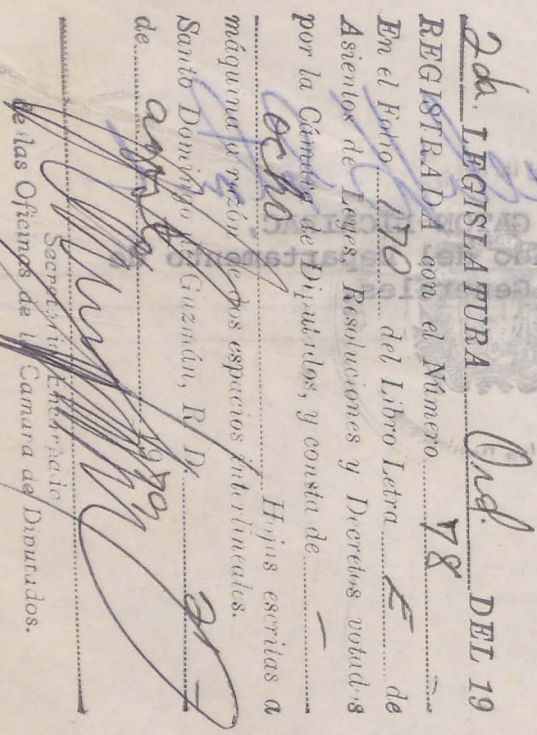 2da. LEGISLATURA Ord. DEL 19
REGISTRADA con el Número 78
En el Folio 170 del Libro Letra E de
Asientos de Leyes, Resoluciones y Decretos votados
por la Cámara de Diputados, y consta de
ocho Hojas escritas a
máquina a razón de dos espacios interlineales.
Santo Domingo de Guzmán, R. D. 31
de agosto 1970
Secretario Encargado
de las Oficinas de la Camara de Diputados.
del Departamento de
Generales